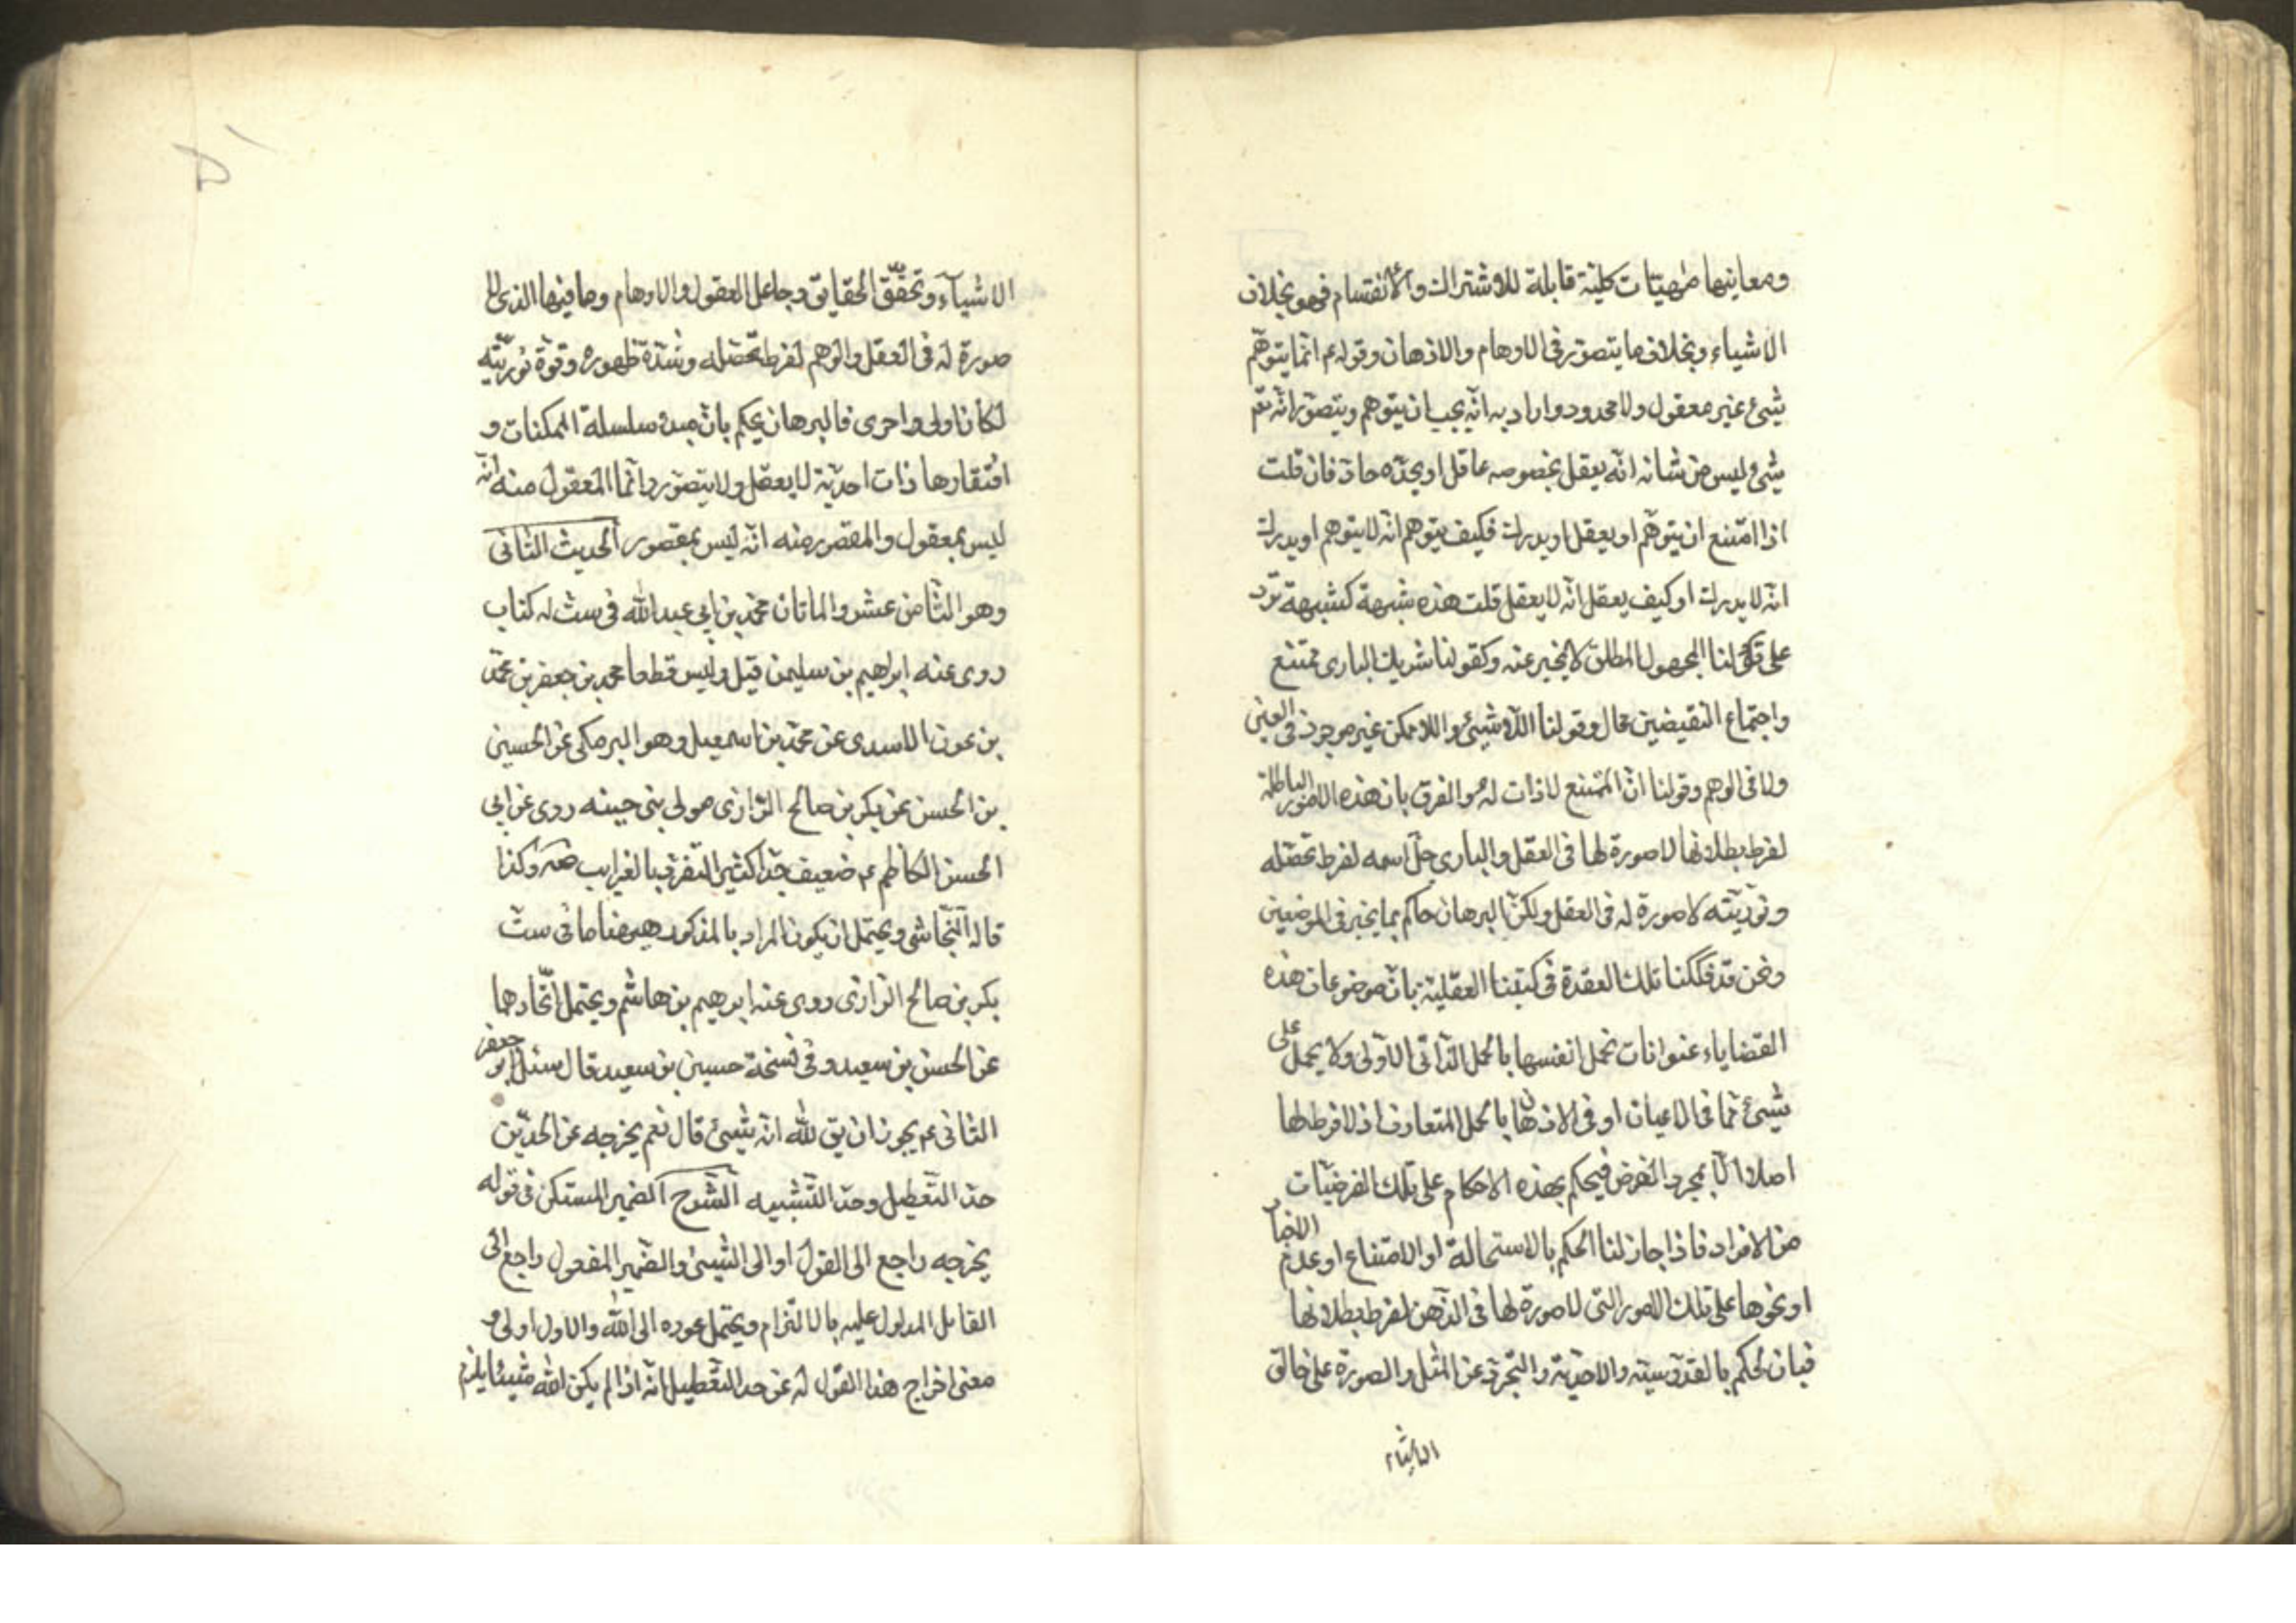 ومعانيها مهيات كلية قابلة للاشتراك والانقسام فهو بخلاف
الاشياء وبخلاف ما يتصور فى الاوهام والاذهان وقوله ع انما يتوهم
شئ غير معقول ولا محدود واراد به انه يجب ان يتوهم ويتصور انه تعم
شئ ليس من شانه انه يعقل بخصوصه عاقل او يحده حاد فان قلت
اذا امتنع ان يتوهم او يعقل او يدرك فكيف يتوهم انه لا يتوهم او يدرك
انه لا يدرك او كيف يعقل انه لا يعقل قلت هذه شبهة كشبهة ترد
على قولنا المجهول المطلق لا يخبر عنه وكقولنا شريك البارى ممتنع
واجتماع النقيضين محال وقولنا اللاشئ واللاممكن غير موجود فى العين
ولا فى الوهم وقولنا ان الممتنع لا ذات له والفرق بان هذه الامور الباطلة
لفرط بطلانها لا صورة لها فى العقل والبارى جل اسمه لفرط تحصله
ونوريته لا صورة له فى العقل ولكن البرهان حاكم بما يخبر فى الموضعين
ونحن قد فككنا تلك العقدة فى كتبنا العقلية بان موضوعات هذه
القضاياء عنوانات تحمل انفسها بالحمل الذاتى الاولى ولا يحمل على
شئ مما فى الاعيان او فى الاذهان بالحمل المتعارف اذ لا فرد لها
اصلا الا بمجرد الفرض فيحكم بهذه الاحكام على تلك الفرضيات
من الافراد فاذا جاز لنا الحكم بالاستحالة او الامتناع او عدم الاخبار
او نحوها على تلك الامور التى لا صورة لها فى الذهن لفرط بطلانها
فبان نحكم بالقدوسية والاحدية والتجرد عن المثل والصورة على خالق
الاشياء
الاشياء وتحقق الحقايق وجاعل العقول والاوهام وما فيها الذى لا
صورة له فى العقل والوهم لفرط تحصله وشدة ظهوره وقوة نوريته
لكان اولى واحرى فالبرهان يحكم بان مبدء سلسلة الممكنات و
افتقارها ذات احدية لا يعقل ولا يتصور وانما المعقول منه انه
ليس بمعقول والمقصور منه انه ليس بمقصور الحديث الثانى
وهو الثامن عشر والماتان محمد بن ابى عبد الله فى ست له كتاب
روى عنه ابراهيم بن سليمن قيل وليس قطعا محمد بن جعفر بن محمد
بن عون الاسدى عن محمد بن اسمعيل وهو البرمكى عن الحسين
بن الحسن عن بكر بن صالح الرازى مولى بنى ضبه روى عن ابى
الحسن الكاظم ع ضعيف جدا كثير التفرد بالغرايب صه وكذا
قاله النجاشى ويحتمل ان يكون المراد بالمذكور هيهنا ما فى ست
بكر بن صالح الرازى روى عنه ابرهيم بن هاشم ويحتمل اتحادهما
عن الحسن بن سعيد وفى نسخة حسين بن سعيد قال سئل ابو جعفر
الثانى ع يجوز ان يق لله انه شئ قال نعم يخرجه عن الحدين
حد التعطيل وحد التشبيه الشرح الضمير المستكن فى قوله
يخرجه راجع الى القول او الى الشئ والضمير المفعول راجع الى
القايل المدلول عليه بالالتزام ويحتمل عوده الى الله والاول اولى و
معنى اخراج هذا القول له عن حد التعطيل انه اذا لم يكن الله شيئا يلزم